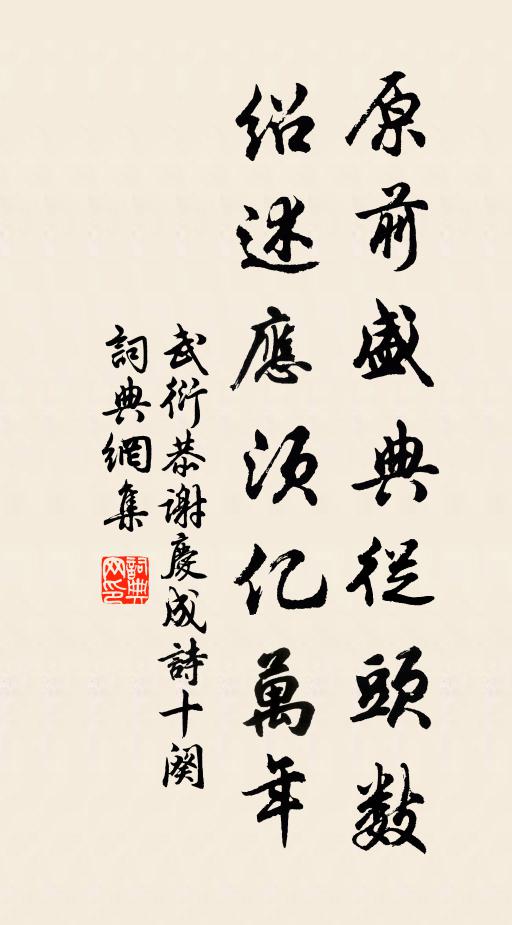 原前盛典從頭數
紹述應須亿萬年
武衍恭谢慶成詩十阕
詞典網集
詞典网印